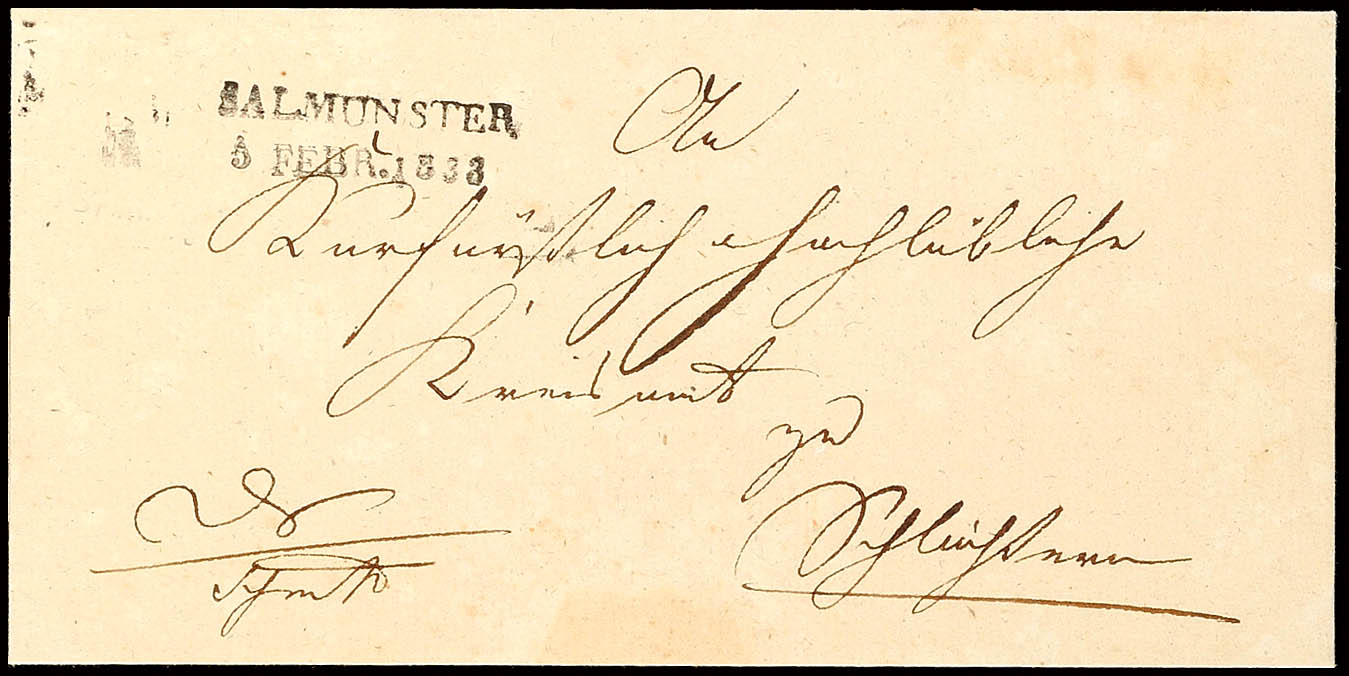 SALMÜNSTER
5 FEBR. 1838
An
Kurfürstlich hochlöbliche
Kreisamt
zu
Schlüchtern